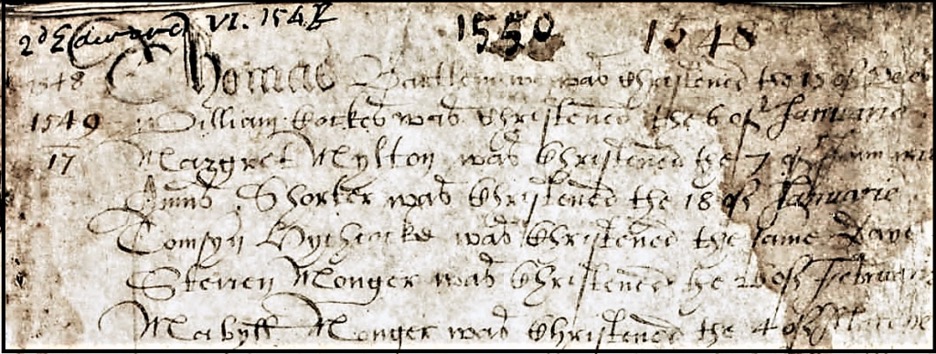 2d Edward VI. 154
1550 1548
1548 Thomas was christened the 13 of
1549 William was christened the 6 of Januarie
17 Margret Mylton was christened the 7 of
Shorter was christened the 18 of Januarie
Tomsyn was christened the same Daye
Steven Monger was christened the 20 of Februarie
Monger was christened the 4 of Marche